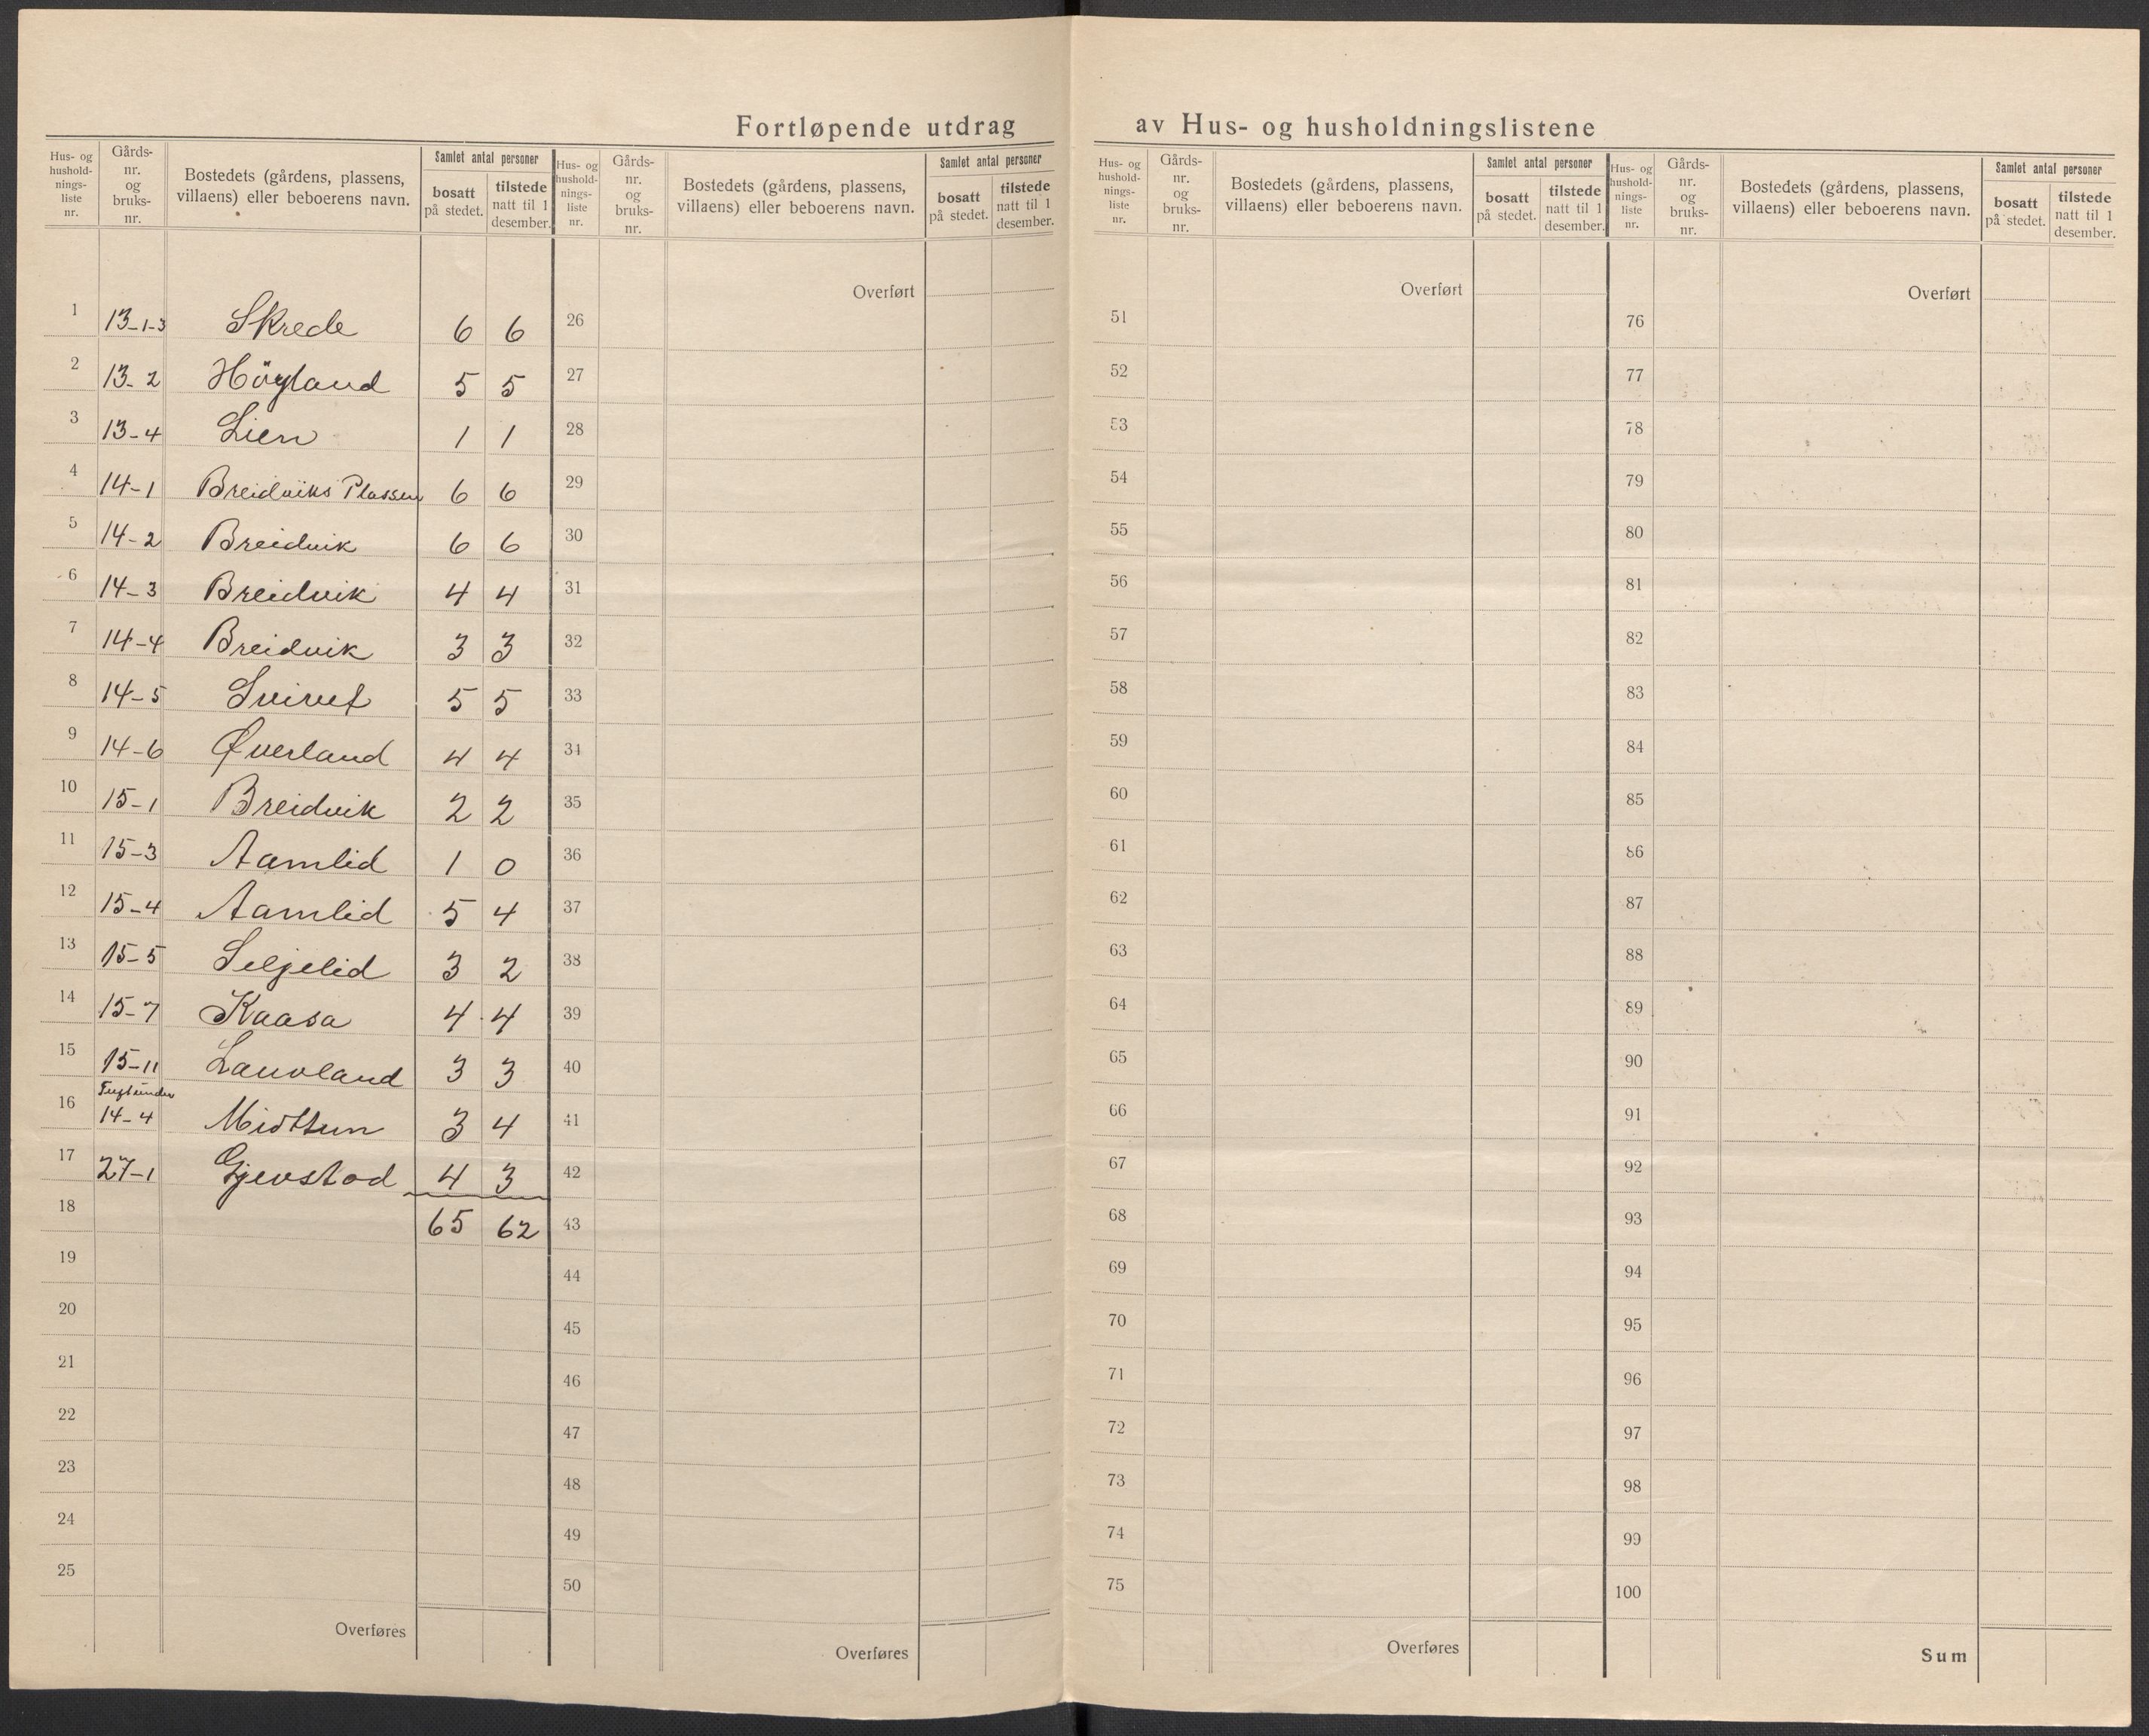 Fortløpende utdrag av Hus- og husholdningslistene
Hus- og hushold-nings-liste nr. Gårds-nr. og bruks-nr. Bostedets (gårdens, plassens, villaens) eller beboerens navn. Samlet antal personer bosatt på stedet. tilstede natt til 1 desember.
1 13-1-3 Skrede 6 6
2 13-2 Höyland 5 5
3 13-4 Lien 1 1
4 14-1 Breidviks Plassen 6 6
5 14-2 Breidvik 6 6
6 14-3 Breidvik 4 4
7 14-4 Breidvik 3 3
8 14-5 5 5
9 14-6 Øverland 4 4
10 15-1 Breidvik 2 2
11 15-3 Aamlid 1 0
12 15-4 Aamlid 5 4
13 15-5 Seljelid 3 2
14 15-7 Kaasa 4 4
15 15-11 Lauvland 3 3
16 14-4 Midttun 3 4
17 27-1 Gjevstad 4 3
18 65 62
19
20
21
22
23
24
25
Overføres
Hus- og hushold-nings-liste nr. Gårds-nr. og bruks-nr. Bostedets (gårdens, plassens, villaens) eller beboerens navn. Samlet antal personer bosatt på stedet. tilstede natt til 1 desember.
Overført
26
27
28
29
30
31
32
33
34
35
36
37
38
39
40
41
42
43
44
45
46
47
48
49
50
Overføres
Hus- og hushold-nings-liste nr. Gårds-nr. og bruks-nr. Bostedets (gårdens, plassens, villaens) eller beboerens navn. Samlet antal personer bosatt på stedet. tilstede natt til 1 desember.
Overført
51
52
53
54
55
56
57
58
59
60
61
62
63
64
65
66
67
68
69
70
71
72
73
74
75
Overføres
Hus- og hushold-nings-liste nr. Gårds-nr. og bruks-nr. Bostedets (gårdens, plassens, villaens) eller beboerens navn. Samlet antal personer bosatt på stedet. tilstede natt til 1 desember.
Overført
76
77
78
79
80
81
82
83
84
85
86
87
88
89
90
91
92
93
94
95
96
97
98
99
100
Sum